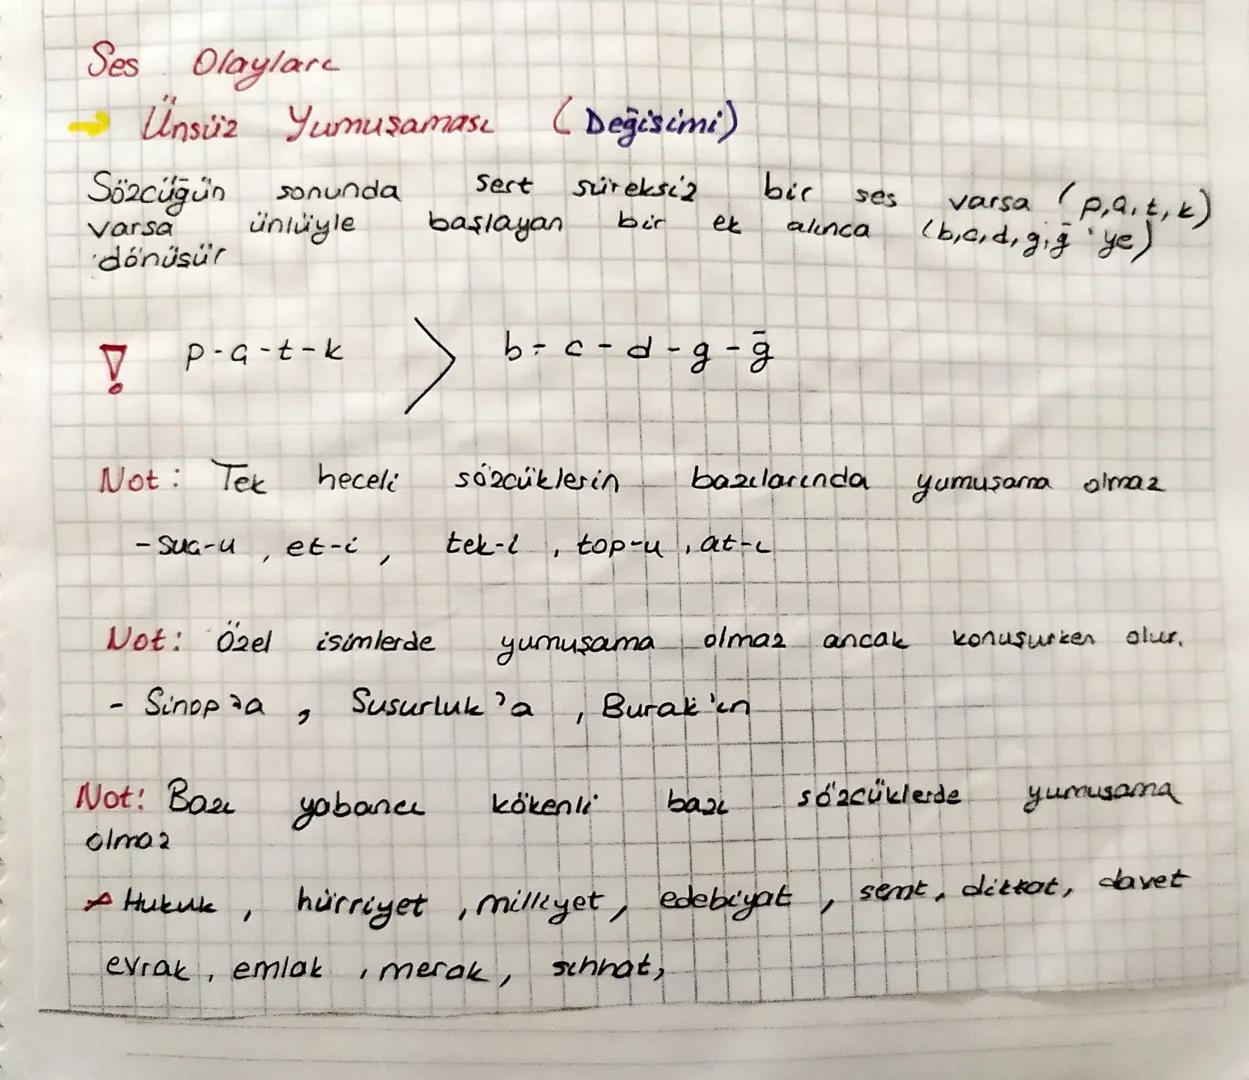 Ses Olayları
Ünsüz Yumuşaması (Değişimi)
Sözcüğün sonunda sert süreksiz bir ses varsa (p,ç,t,k)
varsa ünlüyle başlayan bir ek alınca (b,c,d,g,ğ'ye)
dönüşür
! p-ç-t-k > b-c-d-g-ğ
Not: Tek heceli sözcüklerin bazılarında yumuşama olmaz
-suç-u, et-i, tek-i, top-u, at-ı
Not: Özel isimlerde yumuşama olmaz ancak konuşurken olur.
- Sinop'a, Susurluk'a, Burak'ın
Not: Bazı yabancı kökenli bazı sözcüklerde yumuşama
olmaz
Hukuk, hürriyet, milliyet, edebiyat, semt, dikkat, davet
evrak, emlak, merak, sıhhat,